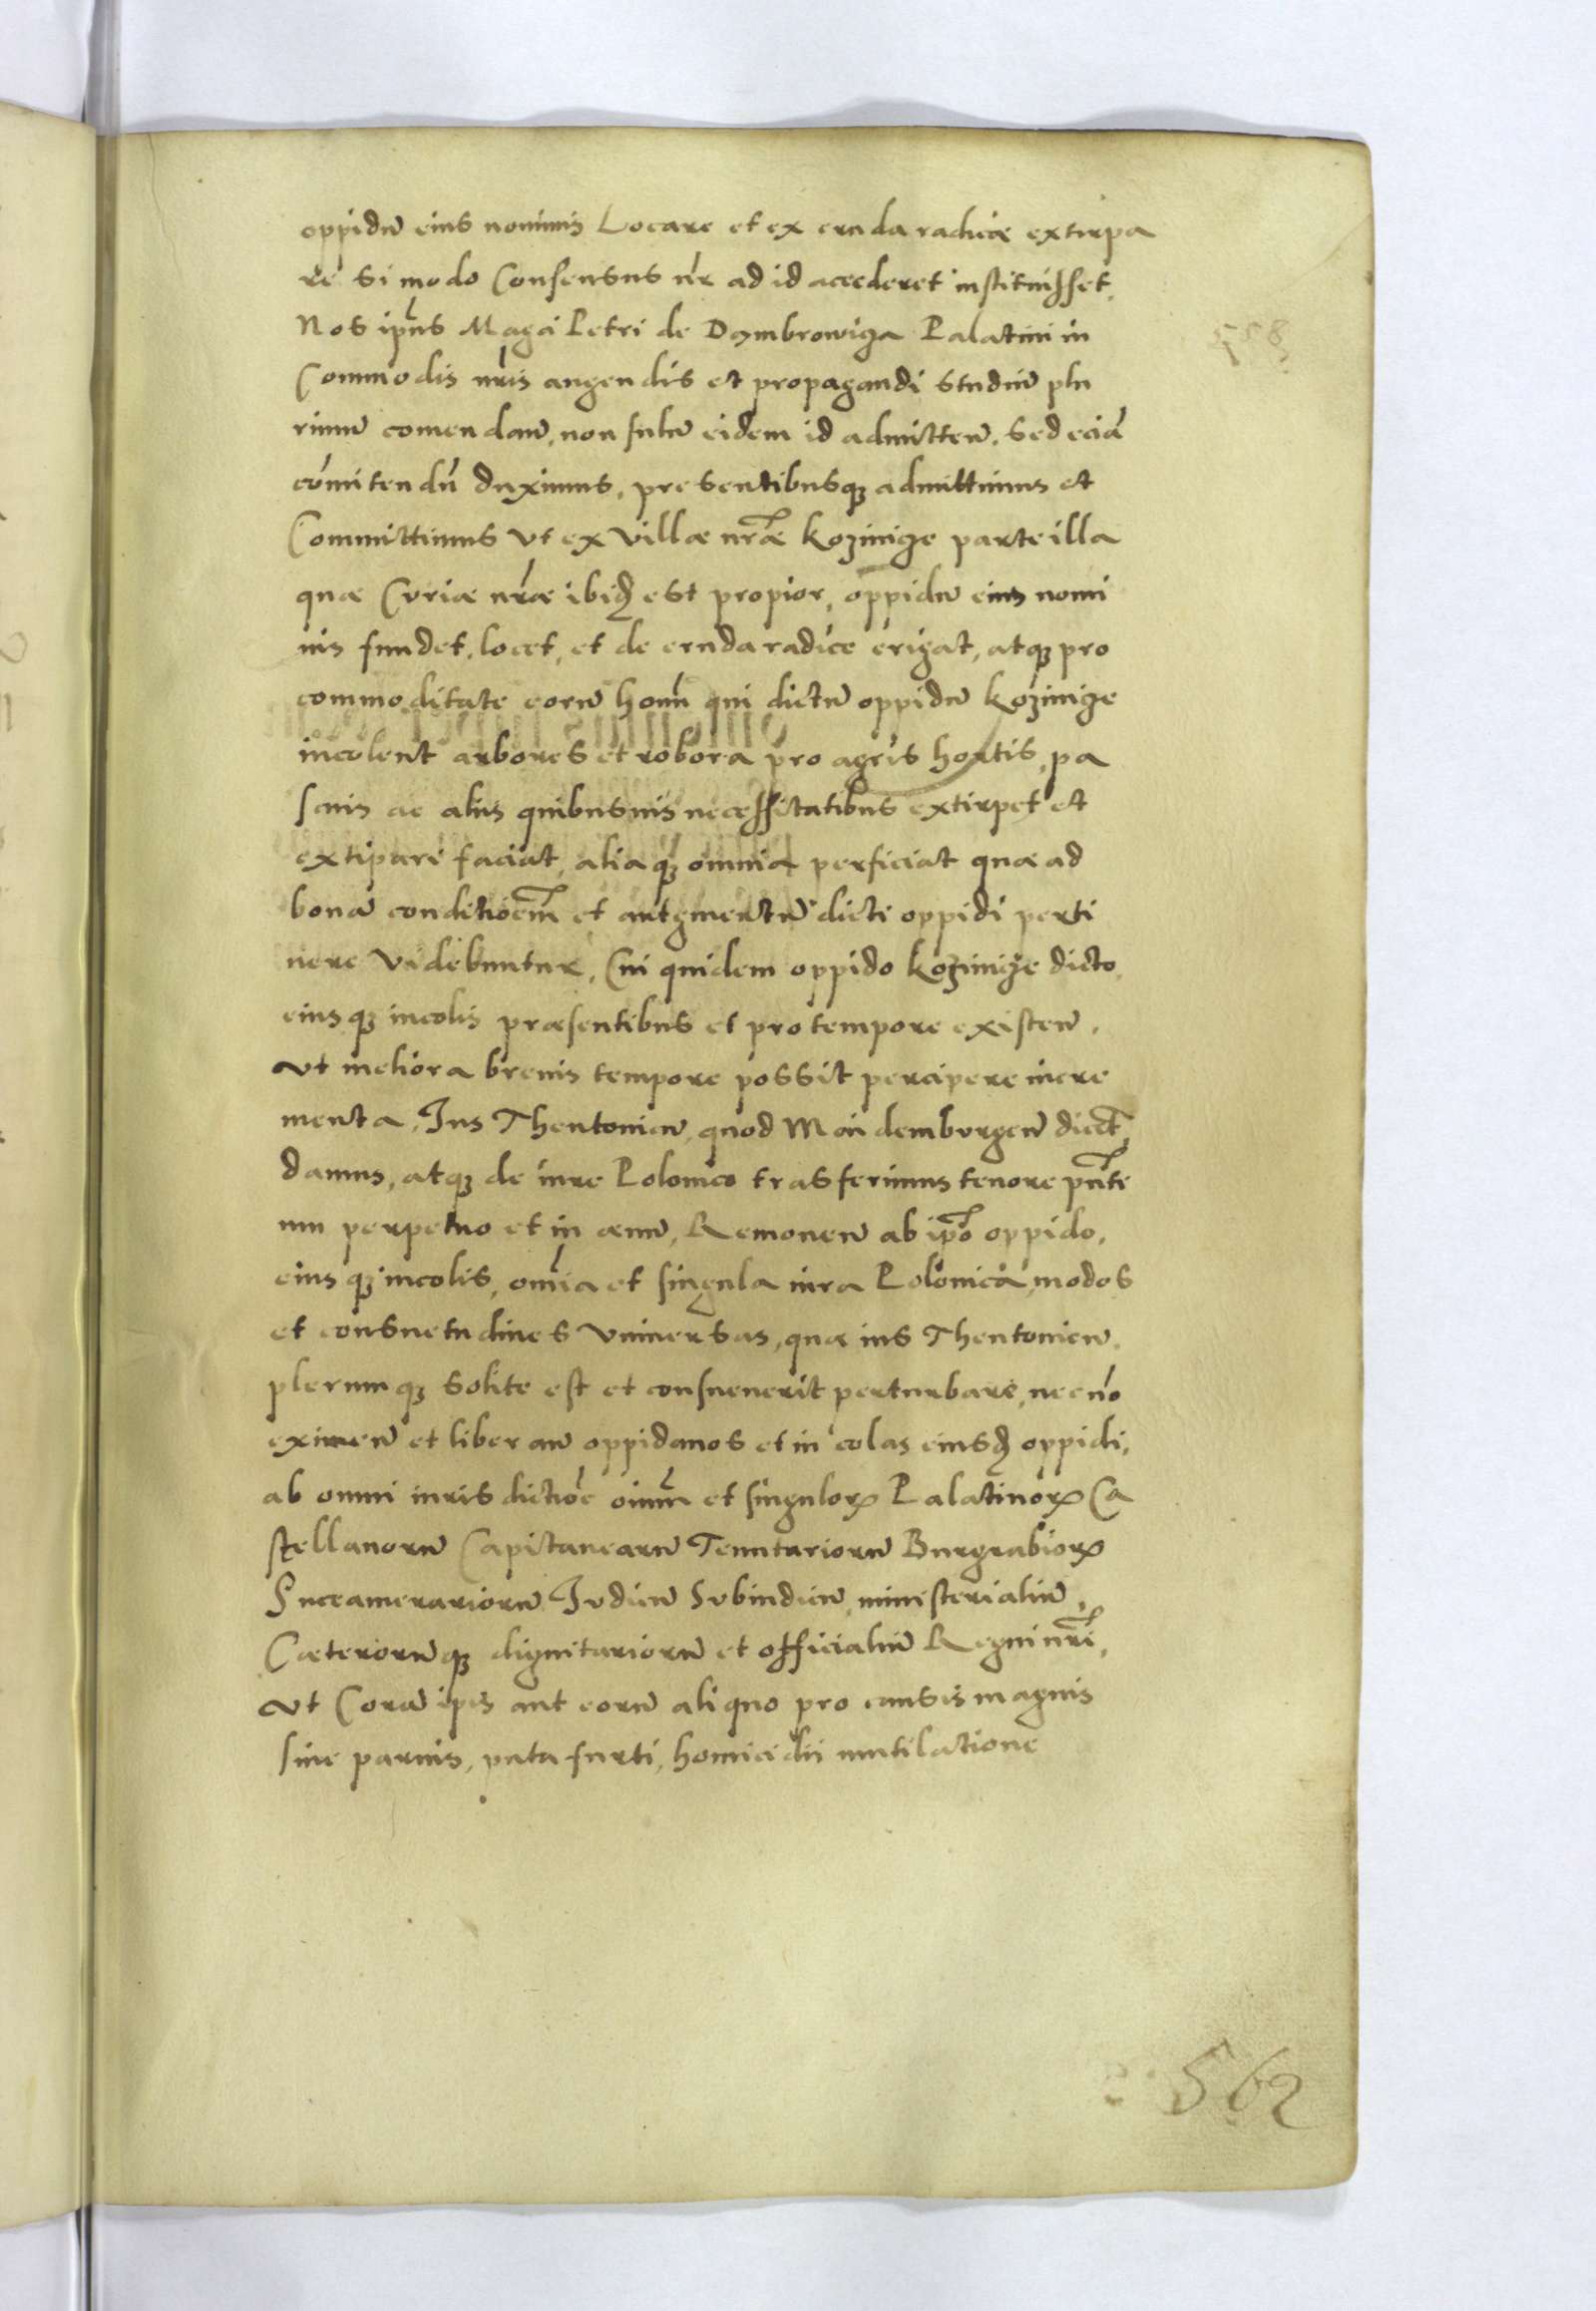 oppidū eius nominis Locare et ex cruda radice extirpa
re si modo Consensus nr̄ ad id accederet instituisset.
Nos ipsius Magci Petri de Dambrowiça Palatini in
Commodis nr̄is augendis et propagandi studiū plu
rimū comendan̄. non sulū eidem id admitten̄. Sed eciā
cōmitendū duximus, presentibusqꝫ admittimus et
Committimus vt ex villae nrae Kozinicze parte illa
quae Curiae nrae ibid est propior, oppidū eius nomi
nis fundet. locet, et de cruda radice erigat, atqꝫ pro
commoditate eorū homī qui dictū oppidū Kozinicze
incolent arbores et robora pro agris hortis, pa
scuis ac aliis quibusuis necessitatibus extirpet et
extipari faciat, aliaqꝫ omnia perficiat quae ad
bonā conditioem et autgmentū dicti oppidi perti
nere videbuntur, Cui quidem oppido Kozinicze dicto
eiusqꝫ incolis praesentibus et pro tempore existen̄.
vt meliora breuis tempore possit percipere incre
menta, Ius Theutonicū, quod Maidemburgen̄ dict
damus, atqꝫ de iure Polonico trasferimus tenore pn̄ti
um perpetuo et in aeuū, Remouen̄ ab ipō oppido,
eiusqꝫ incolis, omīa et singula iura Polonicā, modos
et consuetudines vniuersas, quae ius Theutonicū
plerumqꝫ solite est et consueuerit perturbare, necnō
eximen̄ et liberan̄ oppidanos et incolas eiusd oppidi,
ab omni iurisdictiōe oium et singuloꝝ Palatinoꝝ Ca
stellanorū Capitanearū Tenutariorū Burgrabioꝝ
Succamerariorū Iudicū Subiudicū, ministerialiū,
Caeterorūqꝫ dignitariorū et officialiū Regni nrī,
vt Corā ipis aut eorū aliquo pro causis magnis
siue paruis, puta furti, homicidii mutilatione
562